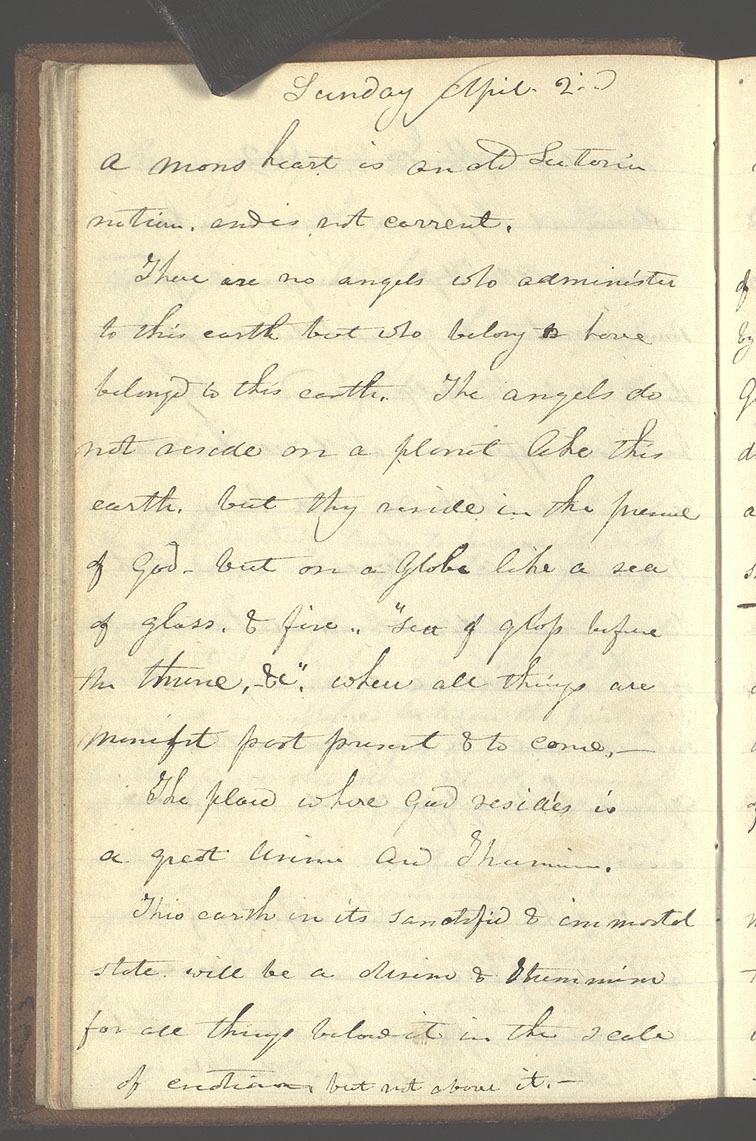 Sunday April 2nd
a mans heart is an old Sectarin
notion. and is not correct.
There are no angels who administer
to this earth but who belong or have
belongd to this earth. The angels do
not reside on a planet like this
earth. but they reside in the presence
of God - but on a Globe like a sea
of glass. & fire.. "sea of glass before
the throne. &c". where all things are
manifest past present & to come. —
The place where God resides is
a great Urim and Thumim.
This earth in its sanctifid & immortal
state. will be a Urim & Thummim
for all things below it in the scale
of creation. but not above it. —